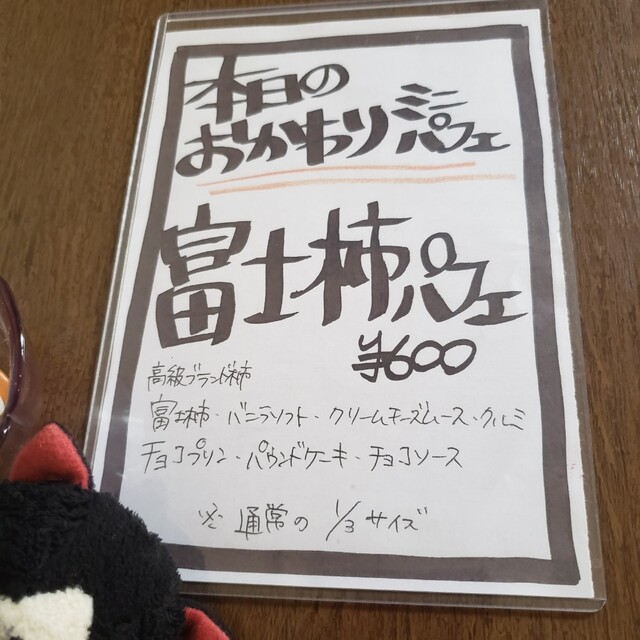 本日の
おかわりミニパフェ
富士柿パフェ
¥600
高級ブランド柿
富士柿・バニラソフト・クリームチーズムース・クルミ
チョコプリン・パウンドケーキ・チョコソース
※ 通常の 1/3 サイズ